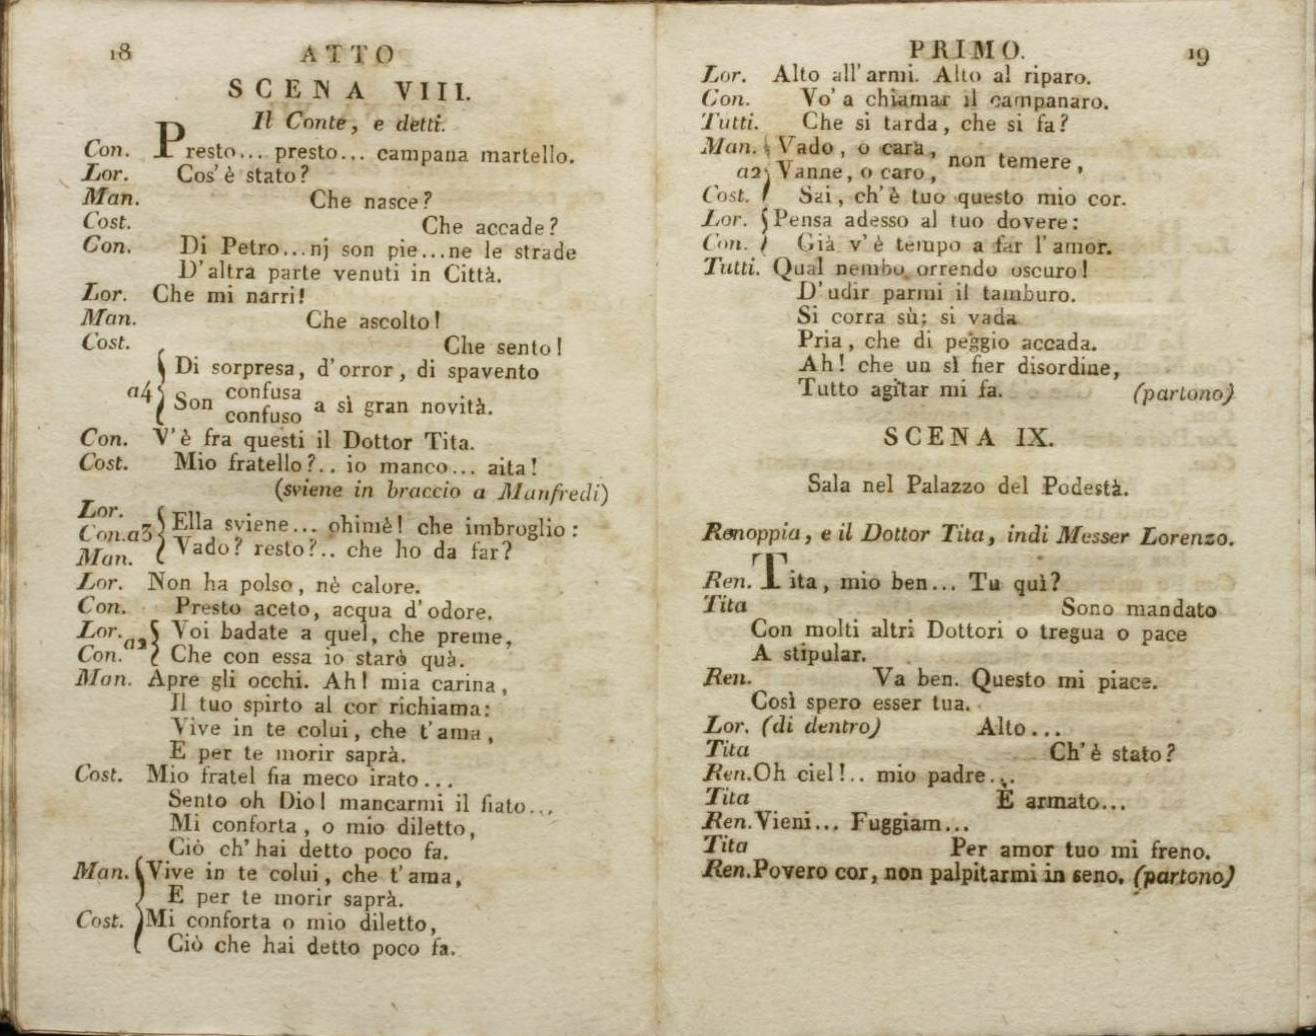 18
ATTO
SCENA VIII.
Il Conte, e detti.
Con. Presto... presto... campana martello.
Lor. Cos'è stato?
Man. Che nasce?
Cost. Che accade?
Con. Di Petro...nj son pie...ne le strade
D'altra parte venuti in Città.
Lor. Che mi narri!
Man. Che ascolto!
Cost. Che sento!
Di sorpresa, d'orror, di spavento
a4 Son confusa
confuso a sì gran novità.
Con. V'è fra questi il Dottor Tita.
Cost. Mio fratello?.. io manco... aita!
(sviene in braccio a Manfredi)
Lor.
Con.a3 Ella sviene... ohimè! che imbroglio:
Man. Vado? resto?.. che ho da far?
Lor. Non ha polso, nè calore.
Con. Presto aceto, acqua d'odore.
Lor. a2 Voi badate a quel, che preme,
Con. Che con essa io starò quà.
Man. Apre gli occhi. Ah! mia carina,
Il tuo spirto al cor richiama:
Vive in te colui, che t'ama,
E per te morir saprà.
Cost. Mio fratel fia meco irato...
Sento oh Dio! mancarmi il fiato...
Mi conforta, o mio diletto,
Ciò ch'hai detto poco fa.
Man. Vive in te colui, che t'ama,
E per te morir saprà.
Cost. Mi conforta o mio diletto,
Ciò che hai detto poco fa.
PRIMO.
19
Lor. Alto all'armi. Alto al riparo.
Con. Vo' a chiamar il campanaro.
Tutti. Che si tarda, che si fa?
Man. Vado, o cara,
a2 Vanne, o caro, non temere,
Cost. Sai, ch'è tuo questo mio cor.
Lor. Pensa adesso al tuo dovere:
Con. Già v'è tempo a far l'amor.
Tutti. Qual nembo orrendo oscuro!
D'udir parmi il tamburo.
Si corra sù: si vada
Pria, che di peggio accada.
Ah! che un sì fier disordine,
Tutto agitar mi fa. (partono)
SCENA IX.
Sala nel Palazzo del Podestà.
Renoppia, e il Dottor Tita, indi Messer Lorenzo.
Ren. Tita, mio ben... Tu quì?
Tita Sono mandato
Con molti altri Dottori o tregua o pace
A stipular.
Ren. Va ben. Questo mi piace.
Così spero esser tua.
Lor. (di dentro) Alto...
Tita Ch'è stato?
Ren. Oh ciel!.. mio padre...
Tita È armato...
Ren. Vieni... Fuggiam...
Tita Per amor tuo mi freno.
Ren. Povero cor, non palpitarmi in seno. (partono)